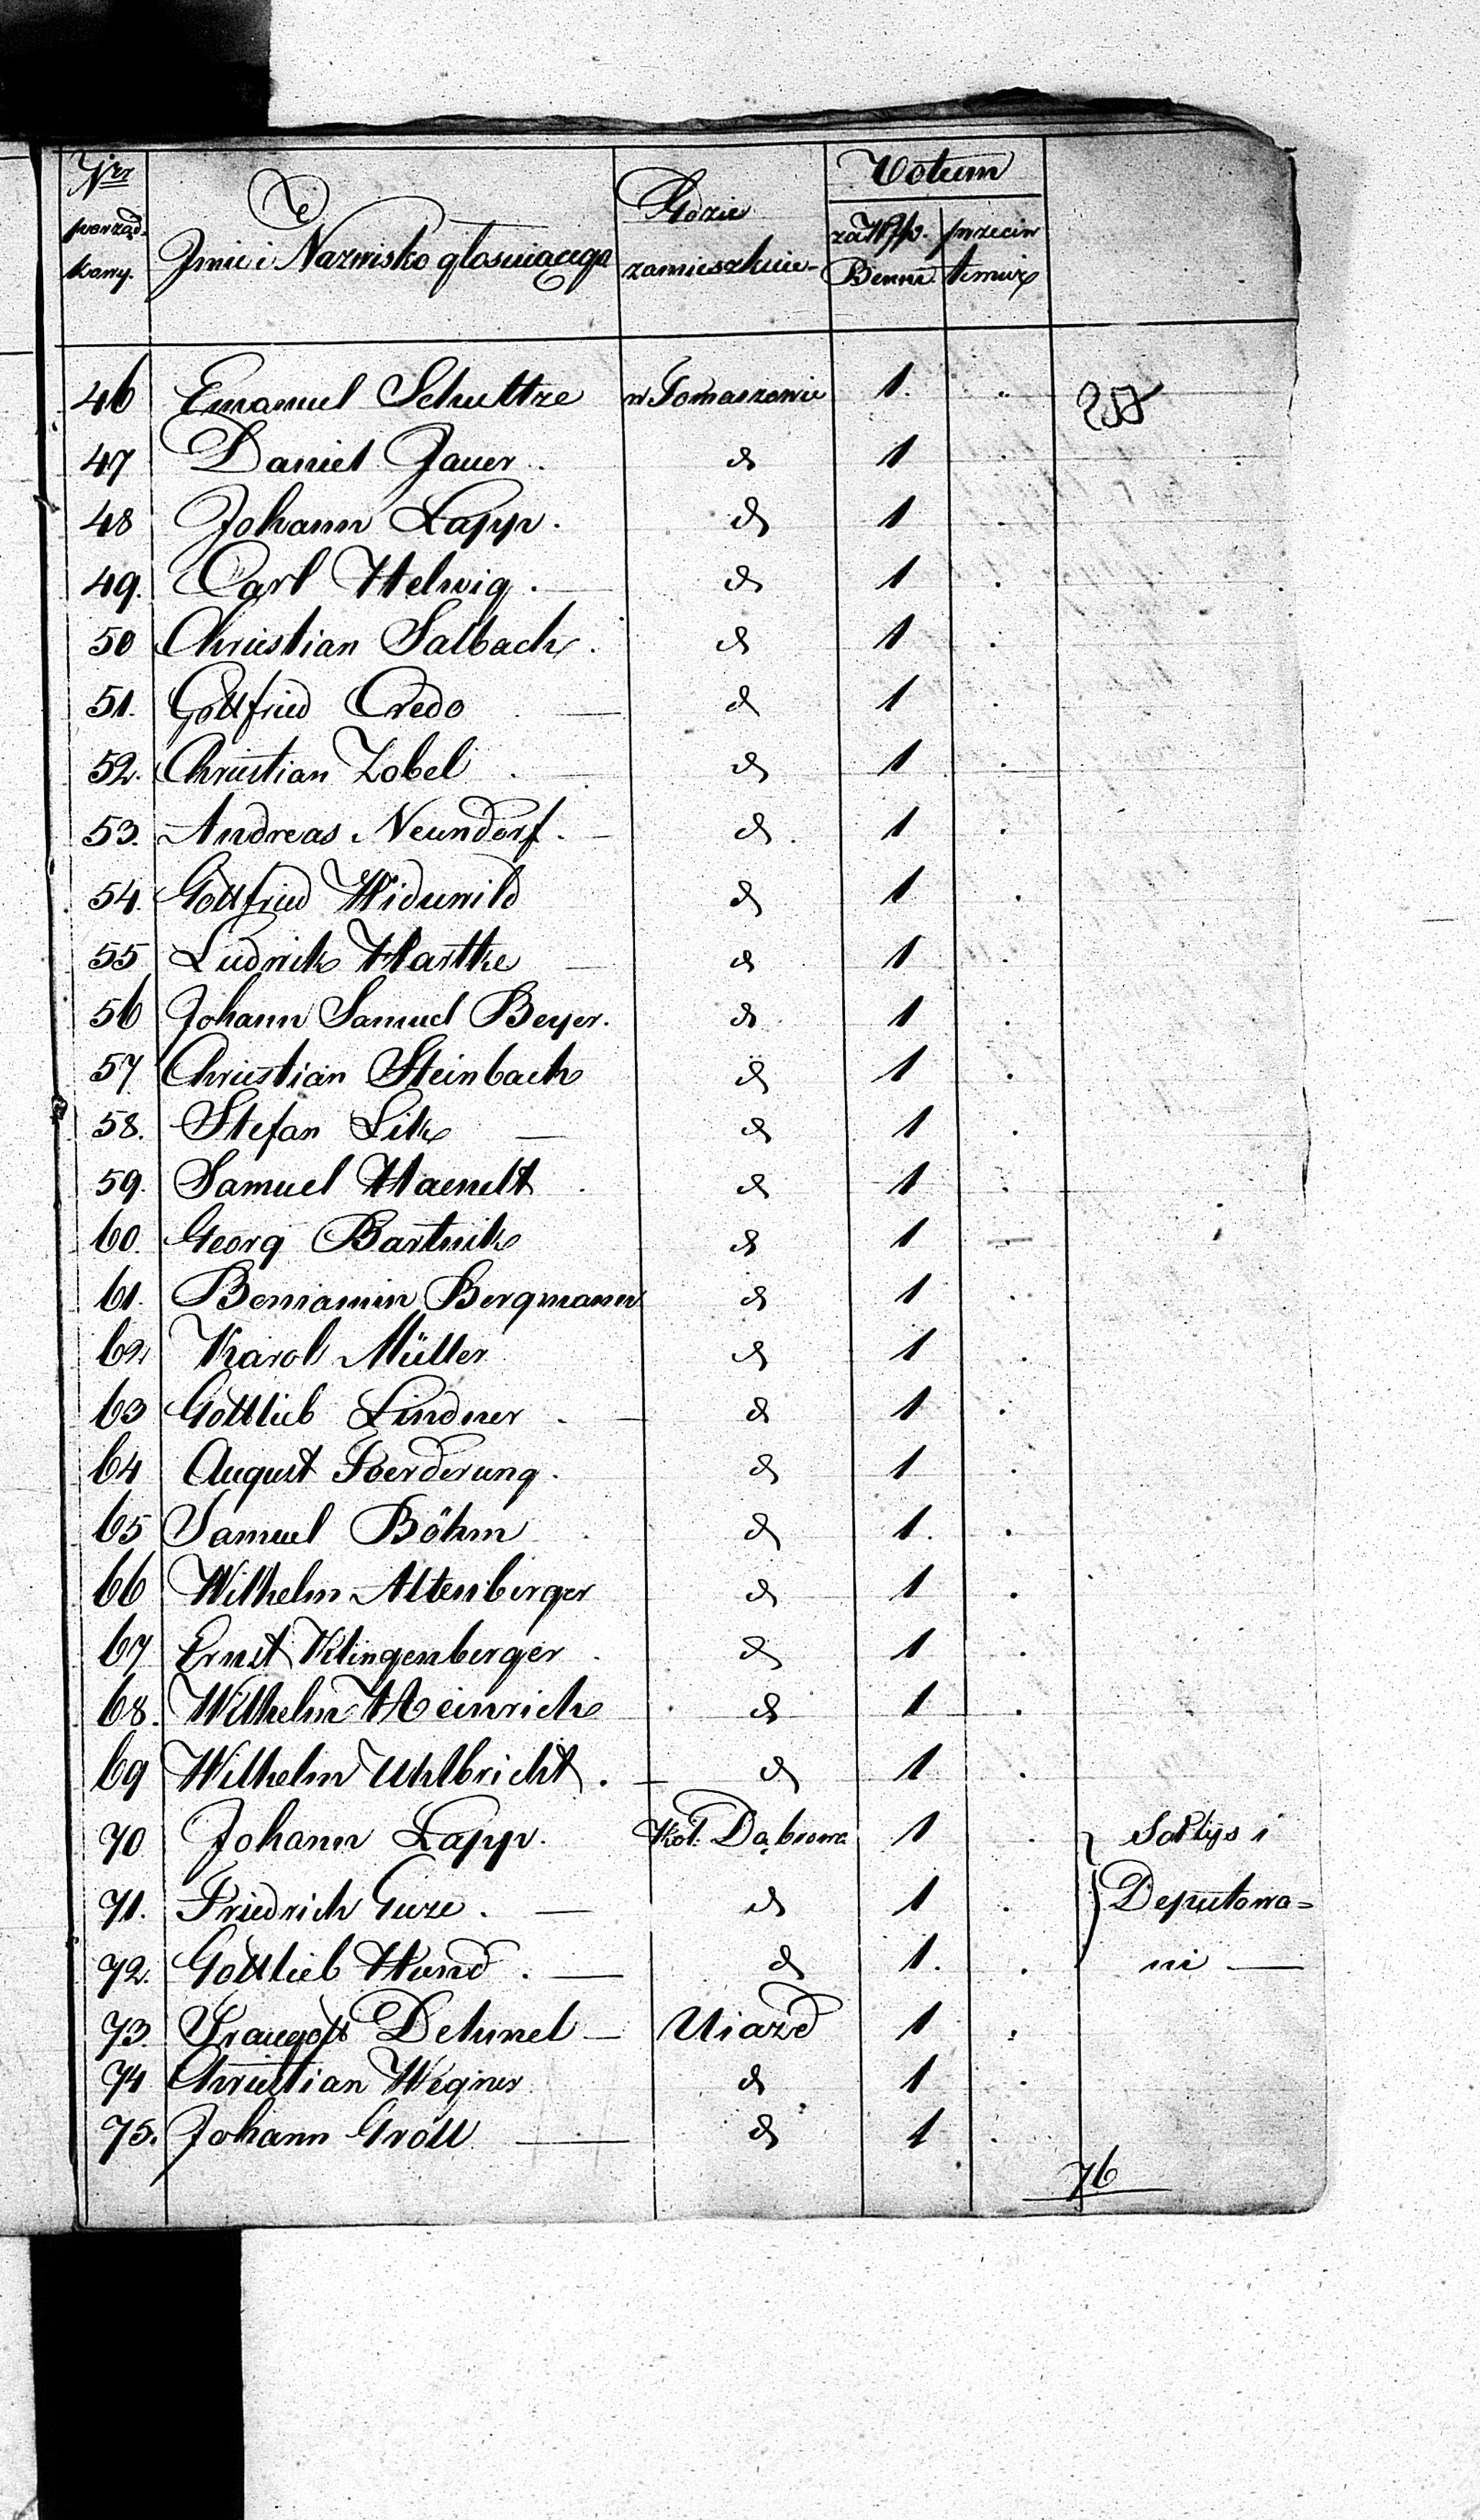 Nrr porząd- kowy.
Imie i Nazwisko głosuiącego
Gdzie zamieszkuie-
Votum
za Wpp. Benni
przeciw temuż
46 Emanuel Schultze w Tomaszowie 1.
47 Daniel Jauer d 1
48 Johann Lapp. d 1
49. Carl Helwig. d 1
50 Christian Salbach. d 1
51. Gottfried Credo d 1
52. Christian Zobel d 1
53. Andreas Neundorf. d 1
54. Gottfried Widuwild d 1
55 Ludwik Hartke d 1
56 Johann Samuel Beyer. d 1
57 Christian Steinbach d 1
58. Stefan Lik d 1
59. Samuel Haendt d 1
60. Georg Bartnik d 1
61. Beniamin Bergmann d 1
62. Karol Müller d 1
63 Gottlieb Lindner d 1
64 August Foerderung. d 1
65 Samuel Böhm d 1.
66 Wilhelm Altenberger d 1
67 Ernst Klingenberger d 1
68. Wilhelm Heinrich d 1
69 Wilhelm Uhlbricht. d 1
70 Johann Lapp. Kol. Dąbrowa 1 Sołtys i
71. Friedrich Guze. d 1 Deputowa=
72. Gottlieb Hund. d 1. ni
73. Traugott Dehmel Uiazd 1
74 Christian Wegner d 1
75. Johann Gröll d 1
76